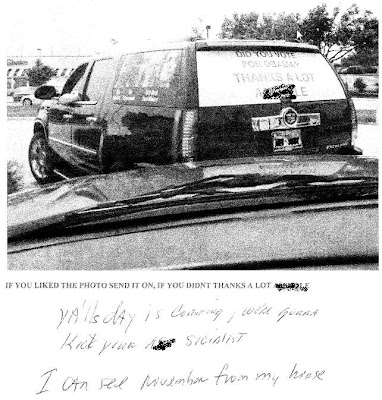 DID YOU VOTE
FOR OBAMA?
THANKS A LOT
IF YOU LIKED THE PHOTO SEND IT ON, IF YOU DIDNT THANKS A LOT
YA'lls dAy is Coming, we're gunna
Kick your SiCiAliST
I CAn See November from my house